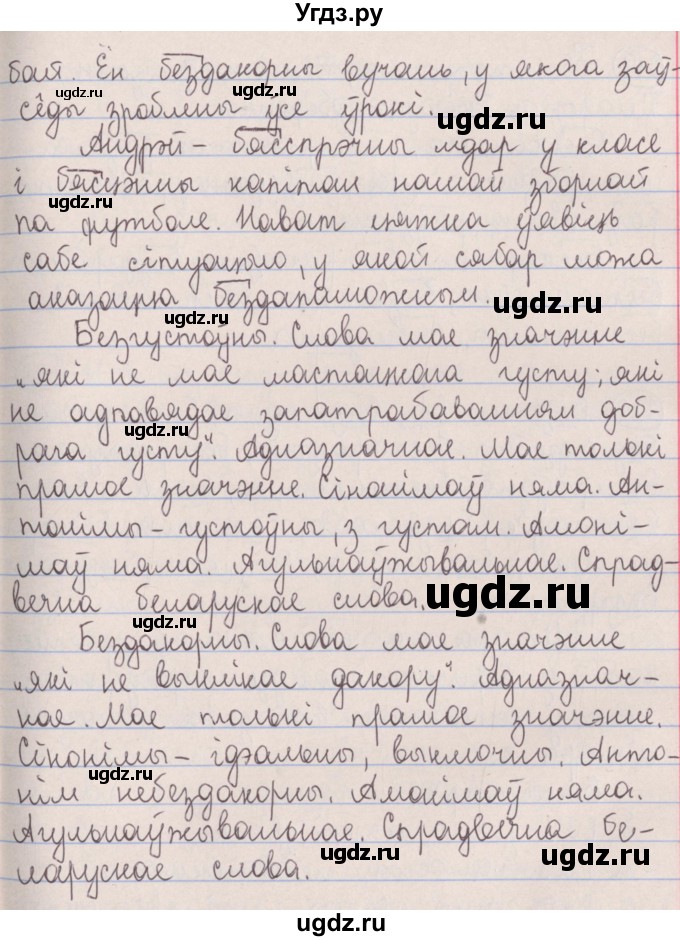 Угдз.ру
боля. Ён бездакорны вучань, у якога заў-
сёды зроблены ўсе ўрокі.
Андрэй – бясспрэчны лідар у класе
і бясменны капітан нашай зборнай
па футболе. Нават цяжка ўявіць
сабе сітуацыю, у якой сябар можа
аказацца бездапаможным.
Безгустоўны. Слова мае значэнне
„які не мае мастацкага густу; які
не адпавядае запатрабаванням доб-
рага густу“. Адназначнае. Мае толькі
прамое значэнне. Сінонімаў няма. Ан-
тонімы – густоўны, з густам. Амоні-
маў няма. Агульнаўжывальнае. Спрад-
вечна беларускае слова.
Бездакорны. Слова мае значэнне
„які не выклікае дакору“. Адназнач-
нае. Мае толькі прамое значэнне.
Сінонімы – ідэальны, выключны. Анто-
нім небездакорны. Амонімаў няма.
Агульнаўжывальнае. Спрадвечна бе-
ларускае слова.
ugdz.ru
ugdz.ru
ugdz.ru
ugdz.ru
ugdz.ru
ugdz.ru
ugdz.ru
ugdz.ru
ugdz.ru
ugdz.ru
ugdz.ru
ugdz.ru
ugdz.ru
ugdz.ru